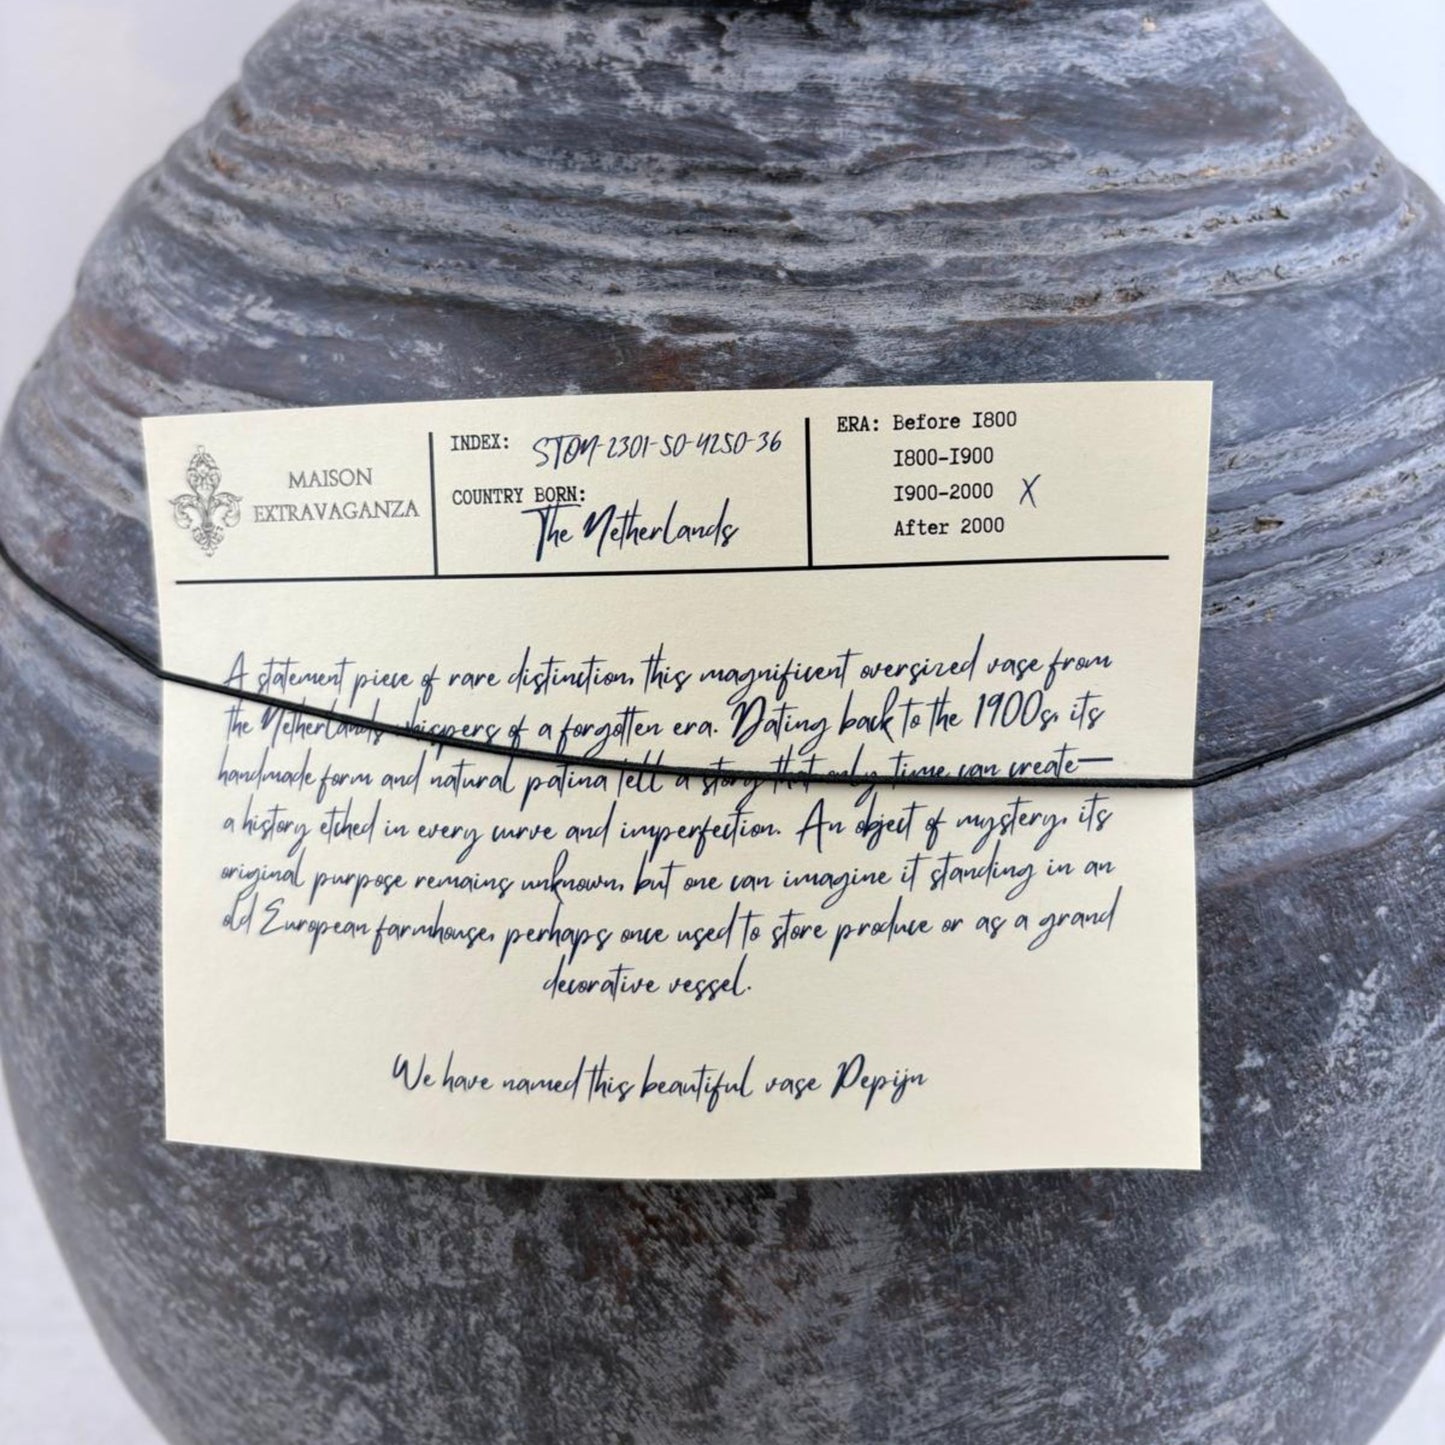 MAISON
EXTRAVAGANZA
INDEX: STOM-2301-50-4250-36
COUNTRY BORN:
The Netherlands
ERA: Before 1800
1800-1900
1900-2000 X
After 2000
A statement piece of rare distinction, this magnificent oversized vase from
the Netherlands whispers of a forgotten era. Dating back to the 1900s, its
handmade form and natural patina tell a story that only time can create—
a history etched in every curve and imperfection. An object of mystery, its
original purpose remains unknown, but one can imagine it standing in an
old European farmhouse, perhaps once used to store produce or as a grand
decorative vessel.
We have named this beautiful vase Pepijn